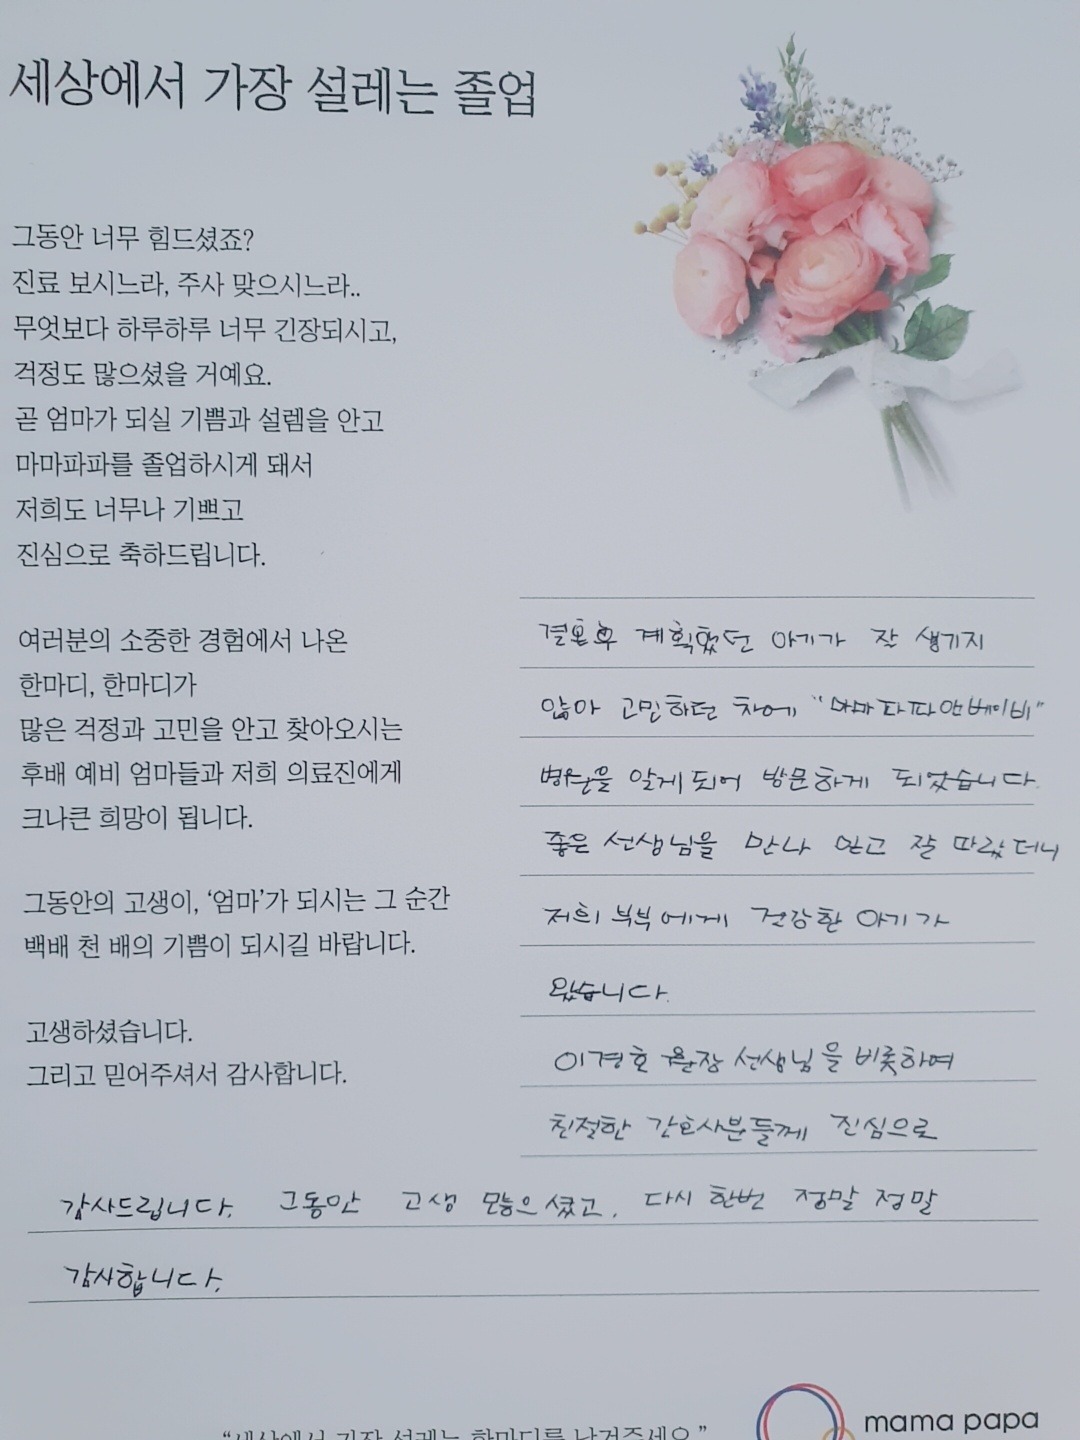 세상에서 가장 설레는 졸업
그동안 너무 힘드셨죠?
진료 보시느라, 주사 맞으시느라..
무엇보다 하루하루 너무 긴장되시고,
걱정도 많으셨을 거예요.
곧 엄마가 되실 기쁨과 설렘을 안고
마마파파를 졸업하시게 돼서
저희도 너무나 기쁘고
진심으로 축하드립니다.
여러분의 소중한 경험에서 나온
한마디, 한마디가
많은 걱정과 고민을 안고 찾아오시는
후배 예비 엄마들과 저희 의료진에게
크나큰 희망이 됩니다.
그동안의 고생이, ‘엄마’가 되시는 그 순간
백배 천 배의 기쁨이 되시길 바랍니다.
고생하셨습니다.
그리고 믿어주셔서 감사합니다.
결혼후 계획했던 아기가 잘 생기지
않아 고민하던 차에 "마마파파앤베이비"
병원을 알게되어 방문하게 되었습니다.
좋은 선생님을 만나 믿고 잘 따랐더니
저희 부부에게 건강한 아기가
왔습니다.
이경호 원장 선생님을 비롯하여
친절한 간호사분들께 진심으로
감사드립니다. 그동안 고생 많으셨고, 다시 한번 정말 정말
감사합니다.
“세상에서 가장 설레는 한마디를 남겨주세요.”
mama papa